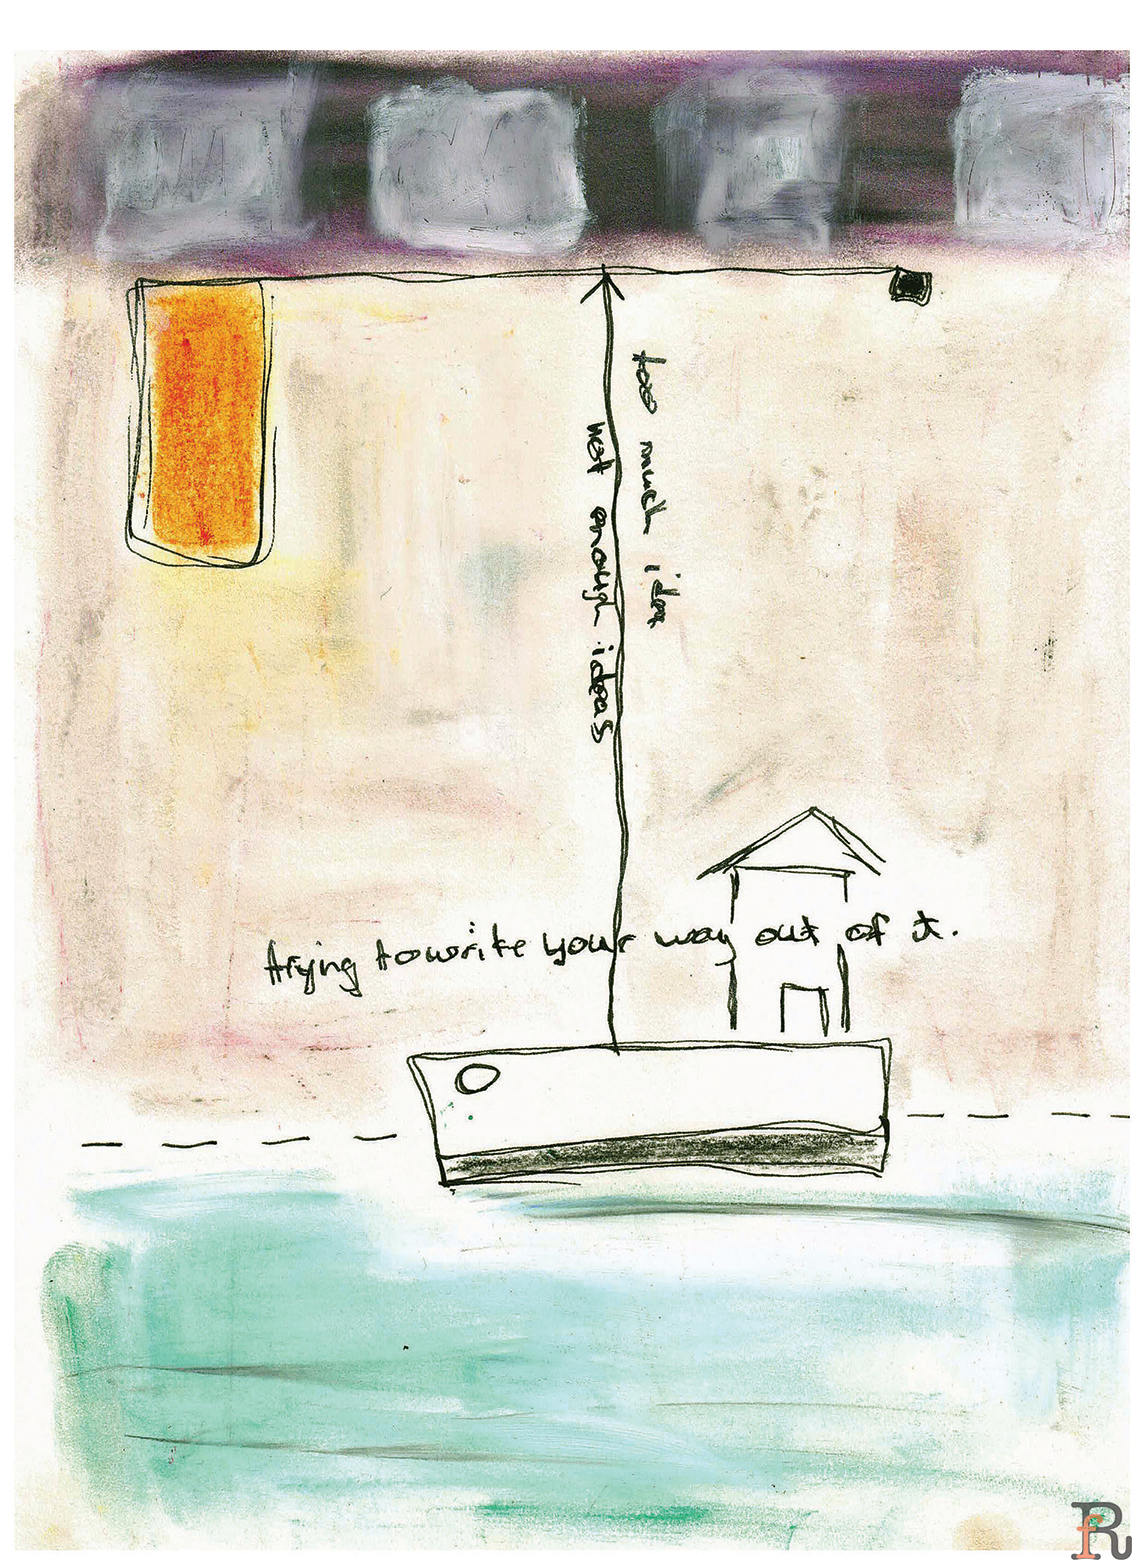 too much idea
not enough ideas
trying to write your way out of it.
fR